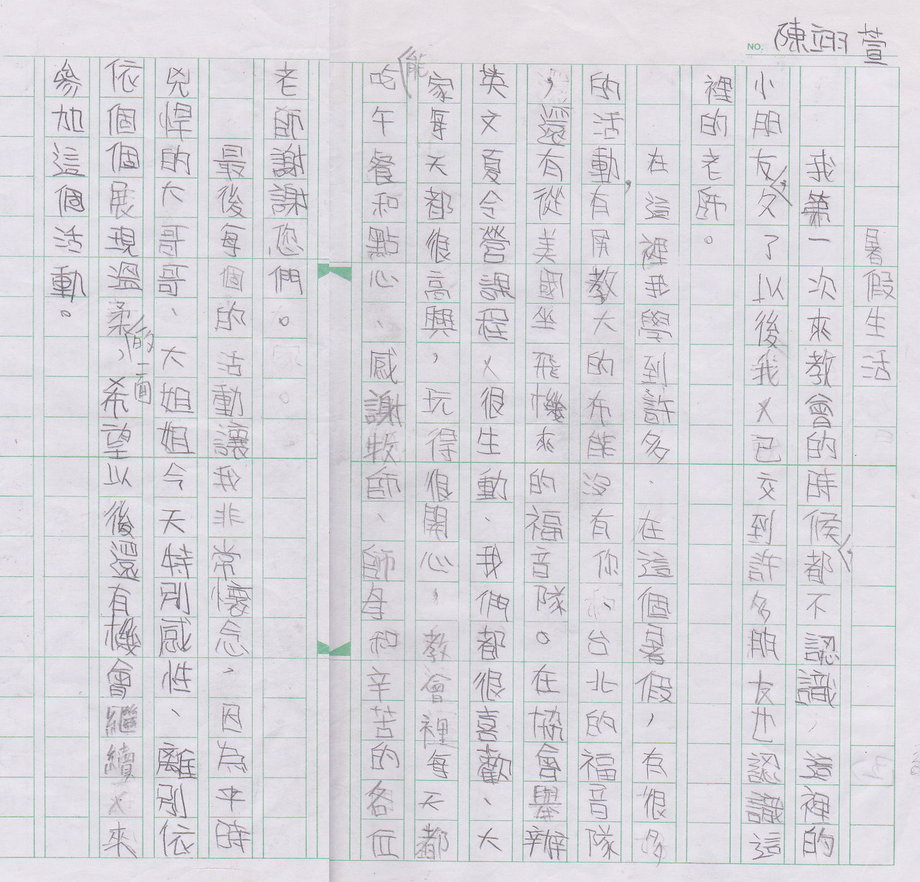 NO. 陳翊萱
暑假生活
我第一次來教會的時候,都不認識,這裡的
小朋友,久了以後我又已交到許多朋友也認識這
裡的老師。
在這裡我學到許多、在這個暑假,有很多
的活動,有屏教大的布能沒有你和台北的福音隊
,還有從美國坐飛機來的福音隊。在協會舉辦
英文夏令營課程又很生動、我們都很喜歡、大
家每天都很高興,玩得很開心,教會裡每天都
能吃午餐和點心、感謝牧師、師母和辛苦的各位
老師謝謝您們。
最後每個的活動讓我非常懷念,因為平時
兇悍的大哥哥、大姐姐今天特別感性、離別依
依個個展現溫柔的一面,希望以後還有機會繼續又來
參加這個活動。